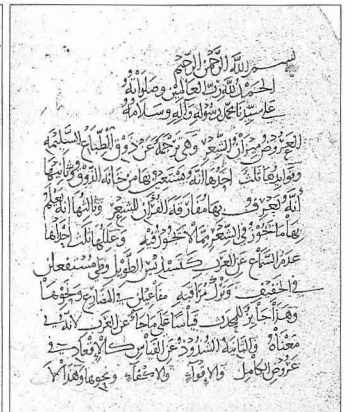 بسم الله الرحمن الرحيم
الحمد لله رب العالمين وصلواته
على سيدنا محمد رسوله وآله وسلامه
العروض ميزان الشعر وهي ترجمة عن ذوق الطباع السليمة
وفوايدها ثلث احدها انه يستعين بها من خانه الذوق وثانيها
انه يعرف بها مفارقة القرآن للشعر وثالثها انه يعلم
بها ما يجوز في الشعر مما لا يجوز فيه وعللها ثلث احداها
عدم السماع عن العرب كتسديس الطويل وطي مستفعلن
في الخفيف وترك مراقبة مفاعيلن في المضارع ونحوها
وهذا جايز للمحدث قياسا على ما جاء عن العرب لانه في
معناه والثانية الشذوذ عن القياس كالاقعاد في
عروض الكامل والاقواء والاكفاء ونحوها وهذا لا